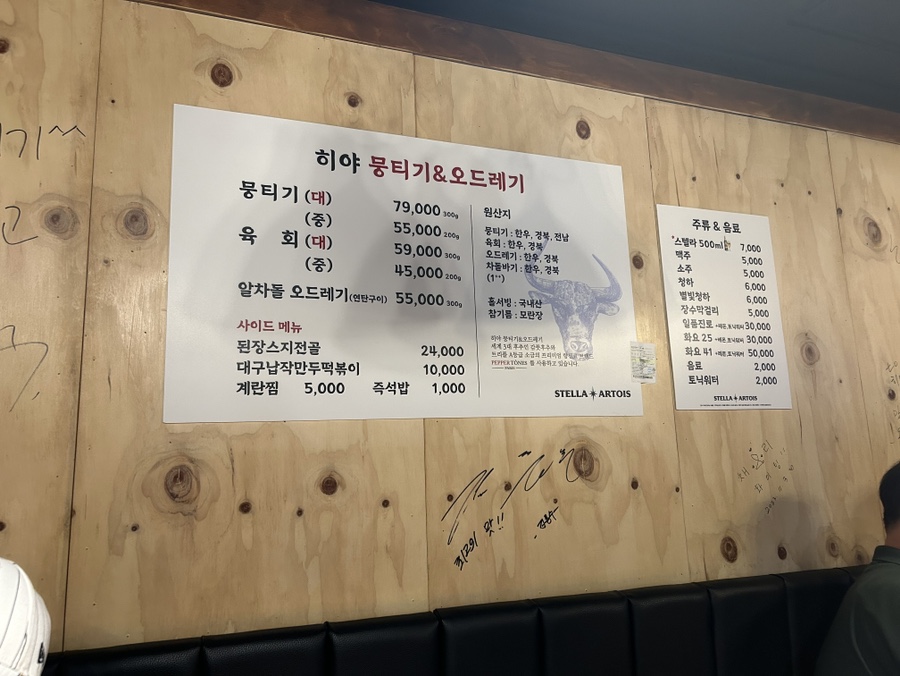 히야 뭉티기&오드레기
뭉티기 (대) 79,000 300g
(중) 55,000 200g
육 회 (대) 59,000 300g
(중) 45,000 200g
알차돌 오드레기(연탄구이) 55,000 300g
사이드 메뉴
된장스지전골 24,000
대구납작만두떡볶이 10,000
계란찜 5,000 즉석밥 1,000
원산지
뭉티기 : 한우, 경북, 전남
육회 : 한우, 경북
오드레기 : 한우, 경북
차돌바기 : 한우, 경북
(1++)
홀서빙 : 국내산
참기름 : 모란장
히야 뭉티기&오드레기
세계 3대 후추인 캄폿후추와
PEPPER TONES 를 사용하고 있습니다.
STELLA ARTOIS
주류 & 음료
*스텔라 500ml 7,000
맥주 5,000
소주 5,000
청하 6,000
별빛청하 6,000
장수막걸리 5,000
일품진로 +레몬,토닉워터 30,000
화요 25 +레몬,토닉워터 30,000
화요 41 +레몬,토닉워터 50,000
음료 2,000
토닉워터 2,000
STELLA ARTOIS
최고의 맛!!